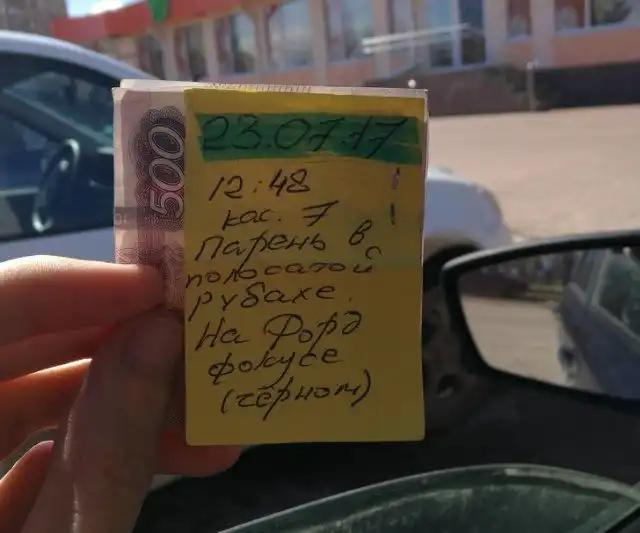 500
23.07.17
12:48
кас. 7
Парень в
полосатой
рубахе.
На Форд
фокусе
(чёрном)